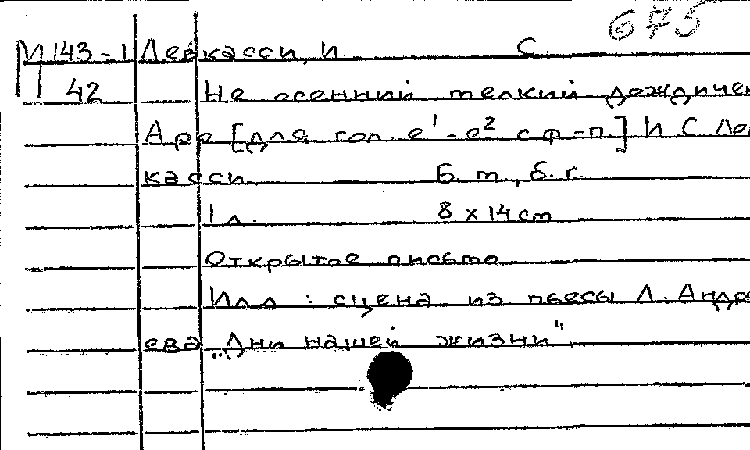 675
М 143-1 Левкасси, И С
42 Не осенний мелкий дождиче
Арр [для гол. e¹-e² с ф-п.] И С Лев
касси Б. м., б. г.
1 л. 8 х 14 см
Открытое письмо
Илл : сцена из пьесы Л. Андре
ева "Дни нашей жизни"